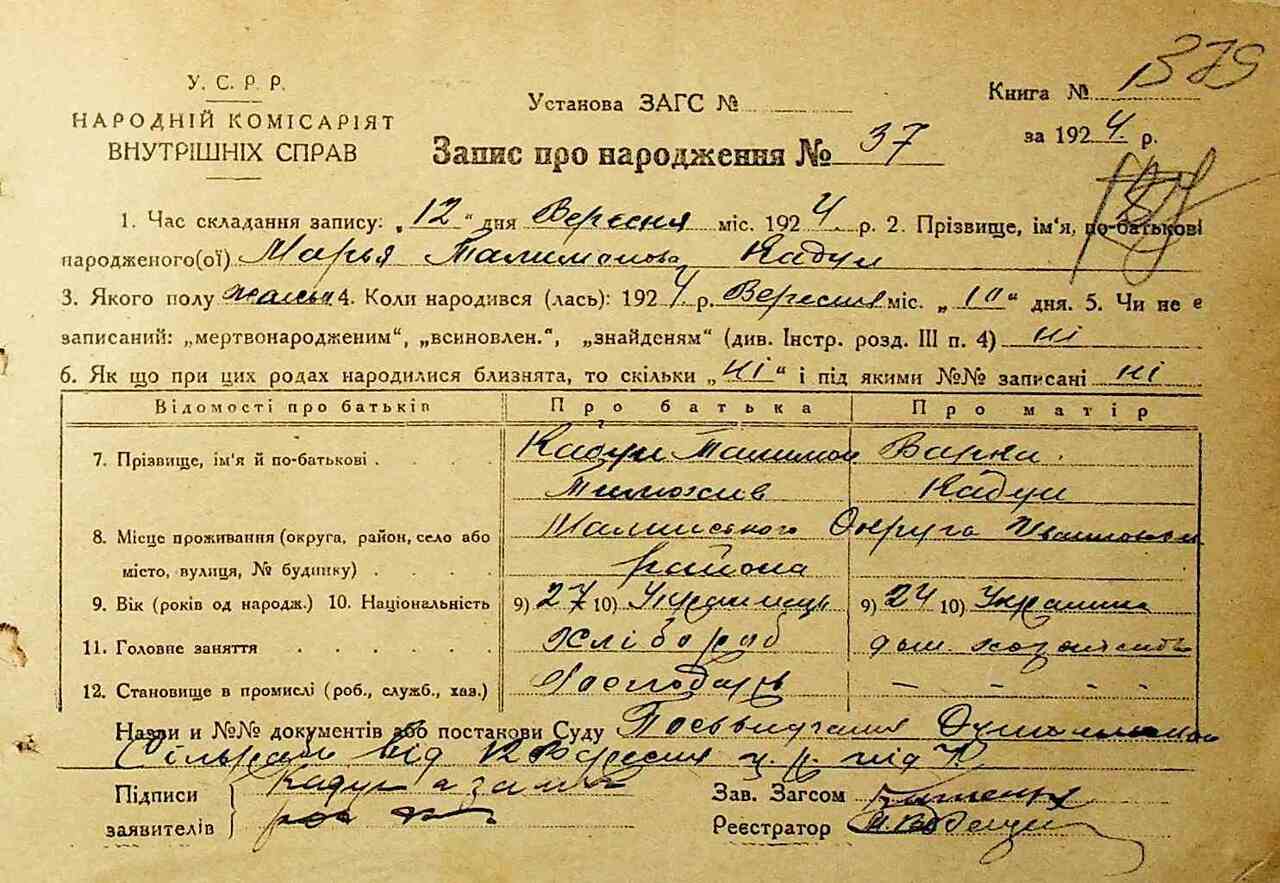 379
У. С. Р. Р.
НАРОДНІЙ КОМІСАРІЯТ
ВНУТРІШНІХ СПРАВ
Установа ЗАГС №
Книга №
за 1924 р.
Запис про народження № 37
1. Час складання запису: „12“ дня Вересня міс. 1924 р. 2. Прізвище, ім'я, по-батькові
народженого(ої) Марья Талимонова Кадун
3. Якого полу 4. Коли народився (лась): 1924 р. Вересня міс. „10“ дня. 5. Чи не є
записаний: „мертвонародженим“, „всиновлен.“, „знайденям“ (див. Інстр. розд. III п. 4) ні
6. Як що при цих родах народилися близнята, то скільки „ні“ і під якими №№ записані ні
Відомості про батьків Про батька Про матір
7. Прізвище, ім'я й по-батькові Кадун Талимон Варка
Кадун
8. Місце проживання (округа, район, село або Округа
місто, вулиця, № будинку) района
9. Вік (років од народж.) 10. Національність 9) 27 10) Украинець 9) 24 10) Украинка
11. Головне заняття Хлібороб дом.
12. Становище в промислі (роб., служб., хаз.) Господарь
Назви и №№ документів або постанови Суду
від 12 Вересня ц. р. під №
Підписи Кадун
заявителів
Зав. Загсом
Реєстратор